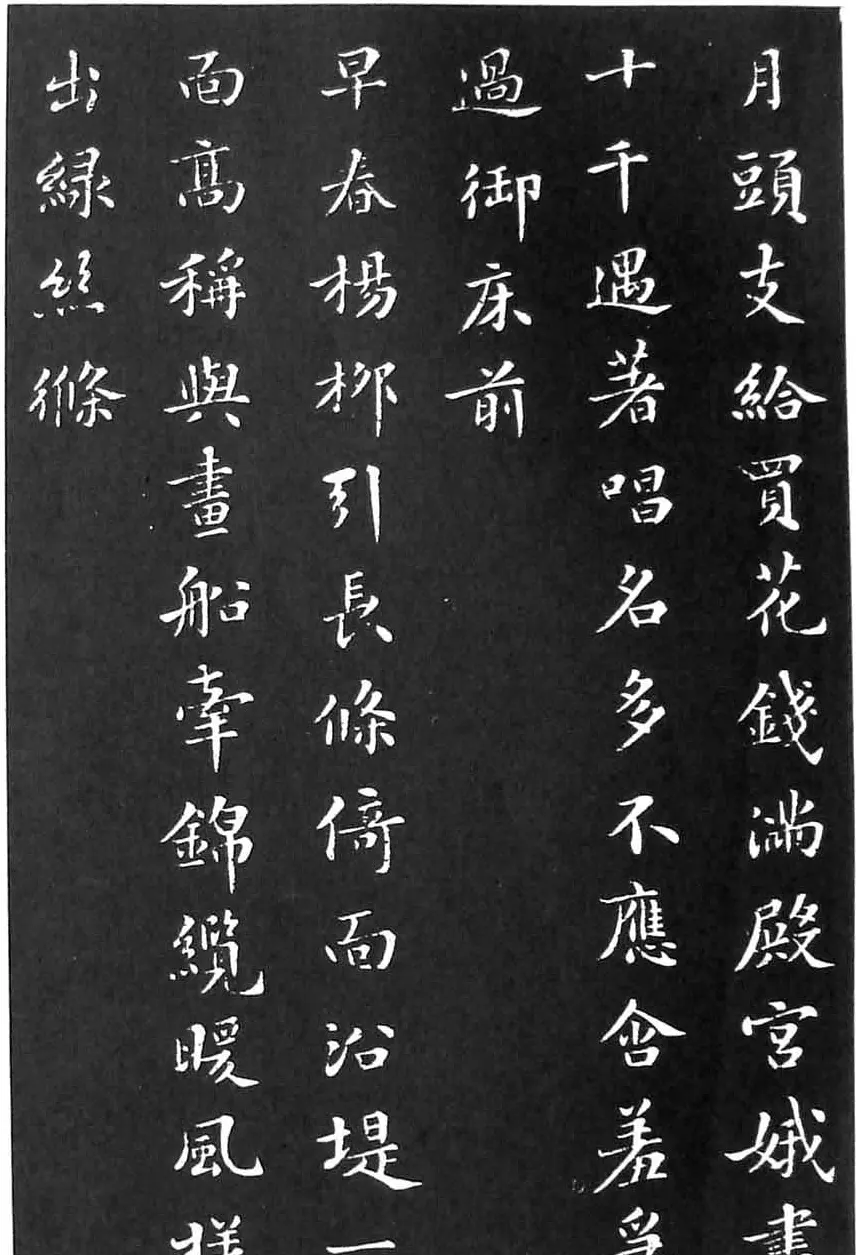 月頭支給買花錢滿殿宮娥
十千遇著唱名多不應含羞
過御床前
早春楊柳引長條倚面沿堤一
面高稱與畫船牽錦纜暖風
出綠絲絛